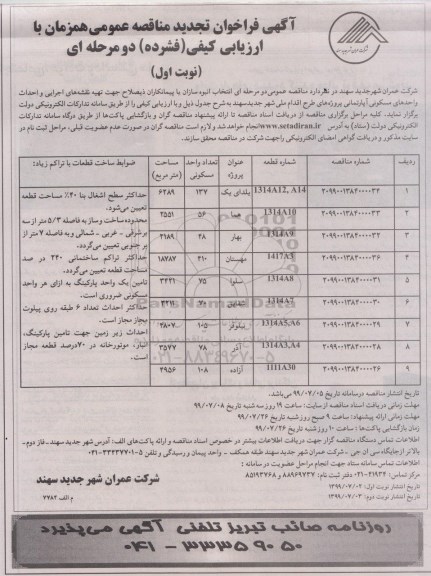 آگهی فراخوان تجدید مناقصه عمومی همزمان با
ارزیابی کیفی (فشرده) دو مرحله ای
(نوبت اول)
شرکت عمران شهر جدید سهند در نظر دارد مناقصه عمومی دو مرحله ای انتخاب انبوه سازان یا پیمانکاران ذیصلاح جهت تهیه نقشه‌های اجرایی و احداث
واحدهای مسکونی آپارتمانی پروژه‌های طرح اقدام ملی شهر جدید سهند به شرح جدول ذیل و با ارزیابی کیفی را از طریق سامانه تدارکات الکترونیکی دولت
برگزار نماید. کلیه مراحل برگزاری مناقصه از دریافت اسناد مناقصه تا ارائه پیشنهاد مناقصه گران و بازگشایی پاکت‌ها از طریق درگاه سامانه تدارکات
الکترونیکی دولت (ستاد) به آدرس www.setadiran.ir انجام خواهد شد و لازم است مناقصه گران در صورت عدم عضویت قبلی، مراحل ثبت نام در
سایت مذکور و دریافت گواهی امضای الکترونیکی را جهت شرکت در مناقصه محقق سازند.
ردیف شماره مناقصه شماره قطعه عنوان پروژه تعداد واحد مسکونی مساحت (متر مربع) ضوابط ساخت قطعات با تراکم زیاد:
۱ ۲۰۹۹۰۰۱۳۸۴۰۰۰۰۳۴ 1314A12, A14 یلدای یک ۱۳۷ ۶۲۸۹
۲ ۲۰۹۹۰۰۱۳۸۴۰۰۰۰۳۳ 1314A10 هما ۵۶ ۲۵۵۱
۳ ۲۰۹۹۰۰۱۳۸۴۰۰۰۰۳۲ 1314A9 بهار ۴۸ ۲۱۸۹
۴ ۲۰۹۹۰۰۱۳۸۴۰۰۰۰۳۶ 1417A3 مهستان ۴۱۰ ۱۸۷۸۷
۵ ۲۰۹۹۰۰۱۳۸۴۰۰۰۰۳۱ 1314A8 سلوا ۷۵ ۳۴۳۱
۶ ۲۰۹۹۰۰۱۳۸۴۰۰۰۰۳۰ 1314A7 شقایق ۷۰
۷ ۲۰۹۹۰۰۱۳۸۴۰۰۰۰۲۹ 1314A5,A6 نیلوفر ۱۰۵
۸ ۲۰۹۹۰۰۱۳۸۴۰۰۰۰۲۸ 1314A3,A4 آذر ۷۸ ۳۵۷۷
۹ ۲۰۹۹۰۰۱۳۸۴۰۰۰۰۲۶ 1111A30 آزاده ۱۰۸ ۴۹۵۶
حداکثر سطح اشغال بنا ۴۰٪ مساحت قطعه
تعیین می‌شود.
محدوده ساخت و ساز به فاصله ۵/۳ متر از سه
بر شرقی - غربی - شمالی و به فاصله ۷ متر از
بر جنوبی تعیین می‌گردد.
حداکثر تراکم ساختمانی ۲۴۰ در صد
مساحت قطعه تعیین می‌گردد.
تامین یک واحد پارکینگ به ازای هر واحد
مسکونی ضروری است.
حداکثر احداث تعداد ۶ طبقه روی پیلوت
مجاز مجاز است.
احداث زیر زمین جهت تامین پارکینگ،
انبار، موتورخانه در ۷۰درصد قطعه مجاز
است.
تاریخ انتشار مناقصه در سامانه تاریخ ۹۹/۰۷/۰۵ می‌باشد.
مهلت زمانی دریافت اسناد مناقصه از سایت: ساعت ۱۹ روز سه شنبه تاریخ ۹۹/۰۷/۰۸
مهلت زمانی ارائه پیشنهاد: ساعت ۹ صبح روز شنبه تاریخ ۹۹/۰۷/۲۶
زمان بازگشایی پاکت‌ها: ساعت ۱۰ روز شنبه تاریخ ۹۹/۰۷/۲۶
اطلاعات تماس دستگاه مناقصه گزار جهت دریافت اطلاعات بیشتر در خصوص اسناد مناقصه و ارائه پاکت‌های الف: آدرس شهر جدید سهند- فاز دوم-
بالاتر از جایگاه سی ان جی - شرکت عمران شهر جدید سهند طبقه همکف - واحد پیمان و رسیدگی و تلفن ۵-۳۳۴۳۷۷۰۱-۰۴۱
اطلاعات تماس سامانه ستاد جهت انجام مراحل عضویت در سامانه:
مرکز تماس: ۴۱۹۳۴-۰۲۱ دفتر ثبت نام: ۸۸۹۶۹۷۳۷ و ۸۵۱۹۳۷۶۸
تاریخ انتشار نوبت اول: ۱۳۹۹/۰۷/۰۲
تاریخ انتشار نوبت دوم: ۱۳۹۹/۰۷/۰۳
شرکت عمران شهر جدید سهند
م الف ۲۷۸۲
روزنامه صائب تبریز تلفنی آگهی می‌پذیرد
۰۴۱ - ۳۳۳۵۹۰۵۰